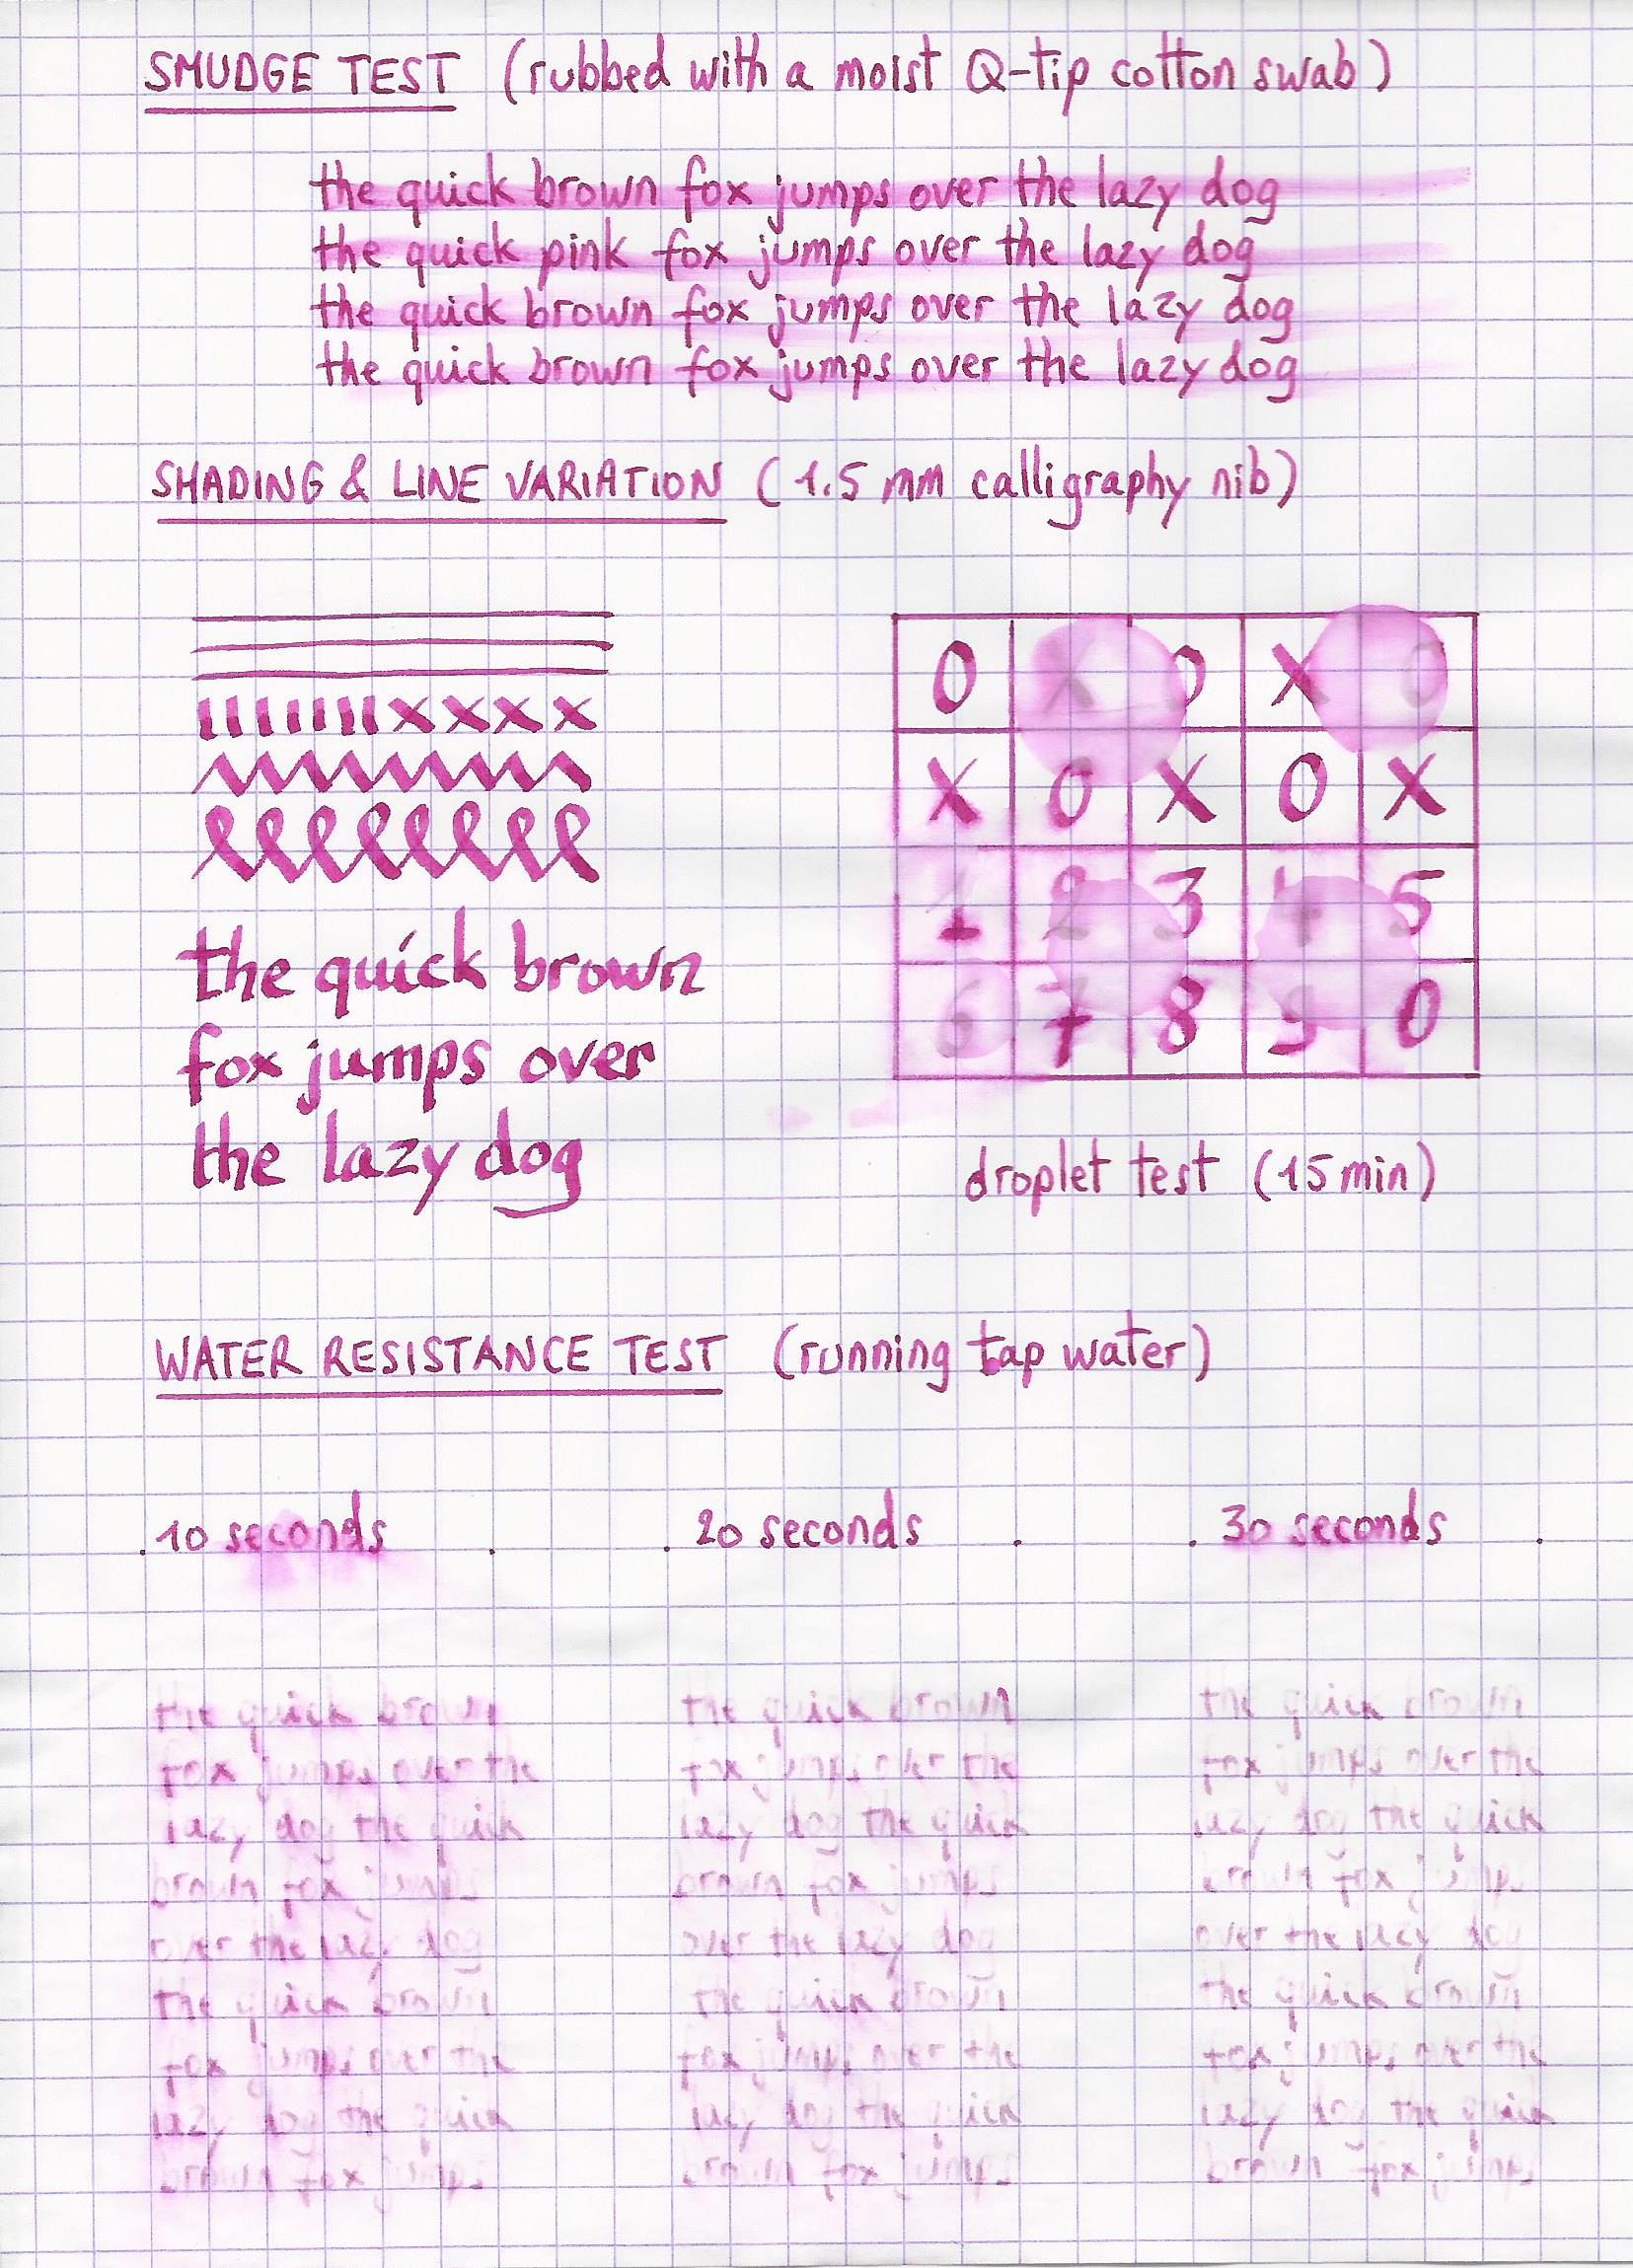 SMUDGE TEST (rubbed with a moist Q-tip cotton swab)
the quick brown fox jumps over the lazy dog
the quick pink fox jumps over the lazy dog
the quick brown fox jumps over the lazy dog
the quick brown fox jumps over the lazy dog
SHADING & LINE VARIATION (1.5 mm calligraphy nib)
the quick brown
fox jumps over
the lazy dog
O X O X O
X O X O X
1 2 3 4 5
6 7 8 9 0
droplet test (15 min)
WATER RESISTANCE TEST (running tap water)
10 seconds
the quick brown
fox jumps over the
lazy dog the quick
brown fox jumps
over the lazy dog
the quick brown
fox jumps over the
lazy dog the quick
brown fox jumps
20 seconds
the quick brown
fox jumps over the
lazy dog the quick
brown fox jumps
over the lazy dog
the quick brown
fox jumps over the
lazy dog the quick
brown fox jumps
30 seconds
the quick brown
fox jumps over the
lazy dog the quick
brown fox jumps
over the lazy dog
the quick brown
fox jumps over the
lazy dog the quick
brown fox jumps